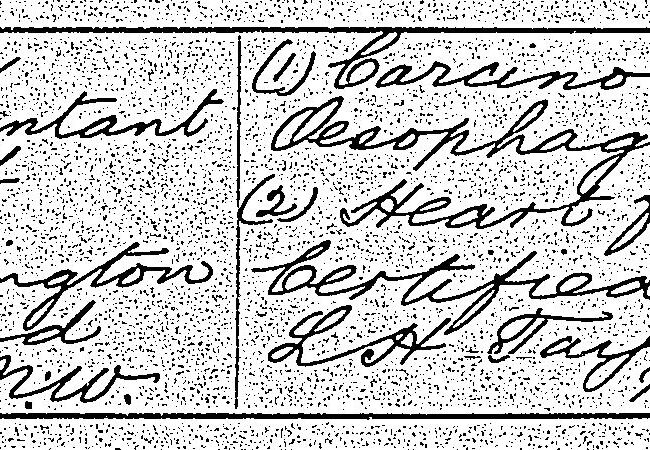 ntant
ngton
d
N.W.
(1) Carcino
Oesophag
(2) Heart f
Certified
L H Tay